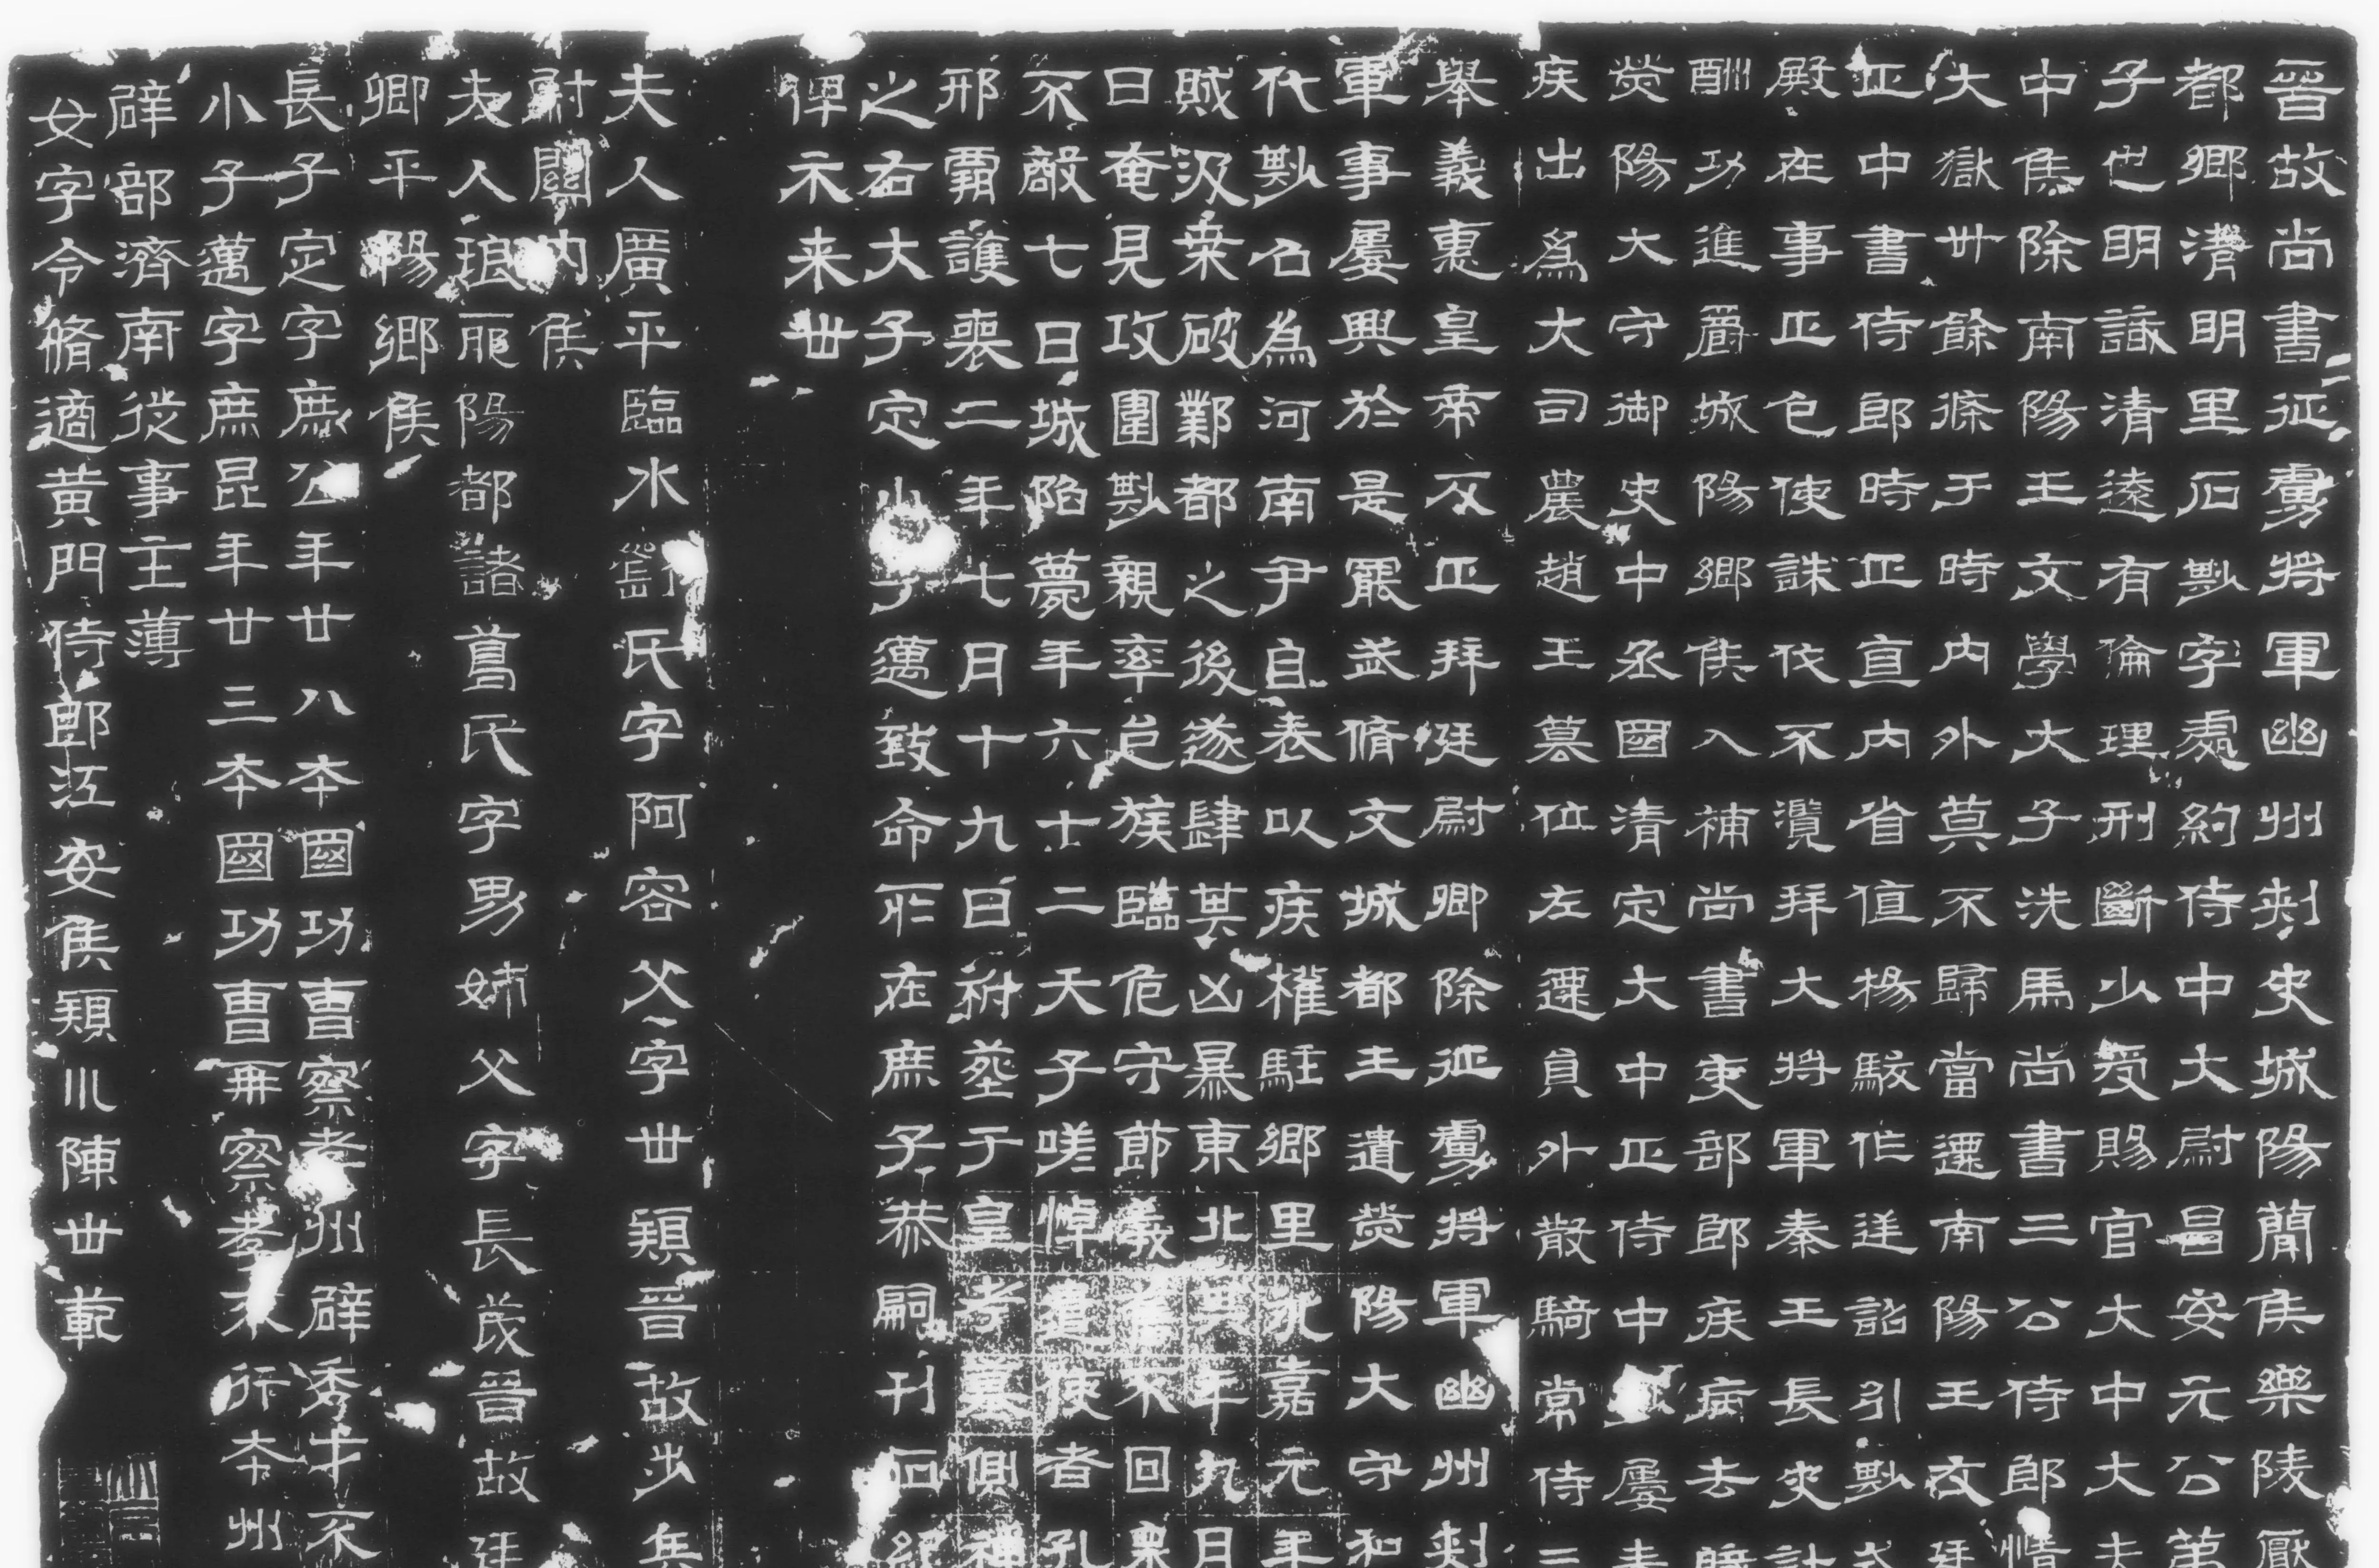 晉故尚書征虜將軍幽州刺史城陽簡侯樂陵厭
都鄉清明里石尠字處約侍中大尉昌安元公第
子也明識清遠有倫理刑斷少受賜官大中大夫
中侯除南陽王文學大子洗馬尚書三公侍郎情
大獄丗餘條于時內外莫不歸當遷南陽王友廷
正中書侍郎時正直內省值楊駿作逆詔引尠式
殿在事正色使誅伐不濫拜大將軍秦王長史計
酬功進爵城陽鄉侯入補尚書吏部郎疾病去職
滎陽大守御史中丞國清定大中正侍中屢表
疾出為大司農趙王篡位左遷員外散騎常侍三
舉義惠皇帝反正拜廷尉卿除征虜將軍幽州刺
軍事屢興於是罷武脩文城都王遣滎陽大守和
代尠名為河南尹自表以疾權駐鄉里永嘉元年
賊汲桑破鄴都之後遂肆其凶暴東北其年九月
日奄見攻圍尠親率邑族臨危守節義不回眾
不敵七日城陷薨年六十二天子嗟悼遣使者孔
邢霸護喪二年七月十九日祔葬于皇考墓側神
之右大子定小子邁致命所在庶子恭嗣刊石紀
俾示来世
夫人廣平臨水劉氏字阿容父字世穎晉故步兵
尉關內侯
夫人琅耶陽都諸葛氏字男姉父字長茂晉故廷
卿平陽鄉侯
長子定字庶公年廿八本國功曹察孝州辟秀才不
小子邁字庶昆年廿三本國功曹再察孝不行本州
辟部濟南從事主薄
女字令脩適黃門侍郎江安侯穎川陳世範